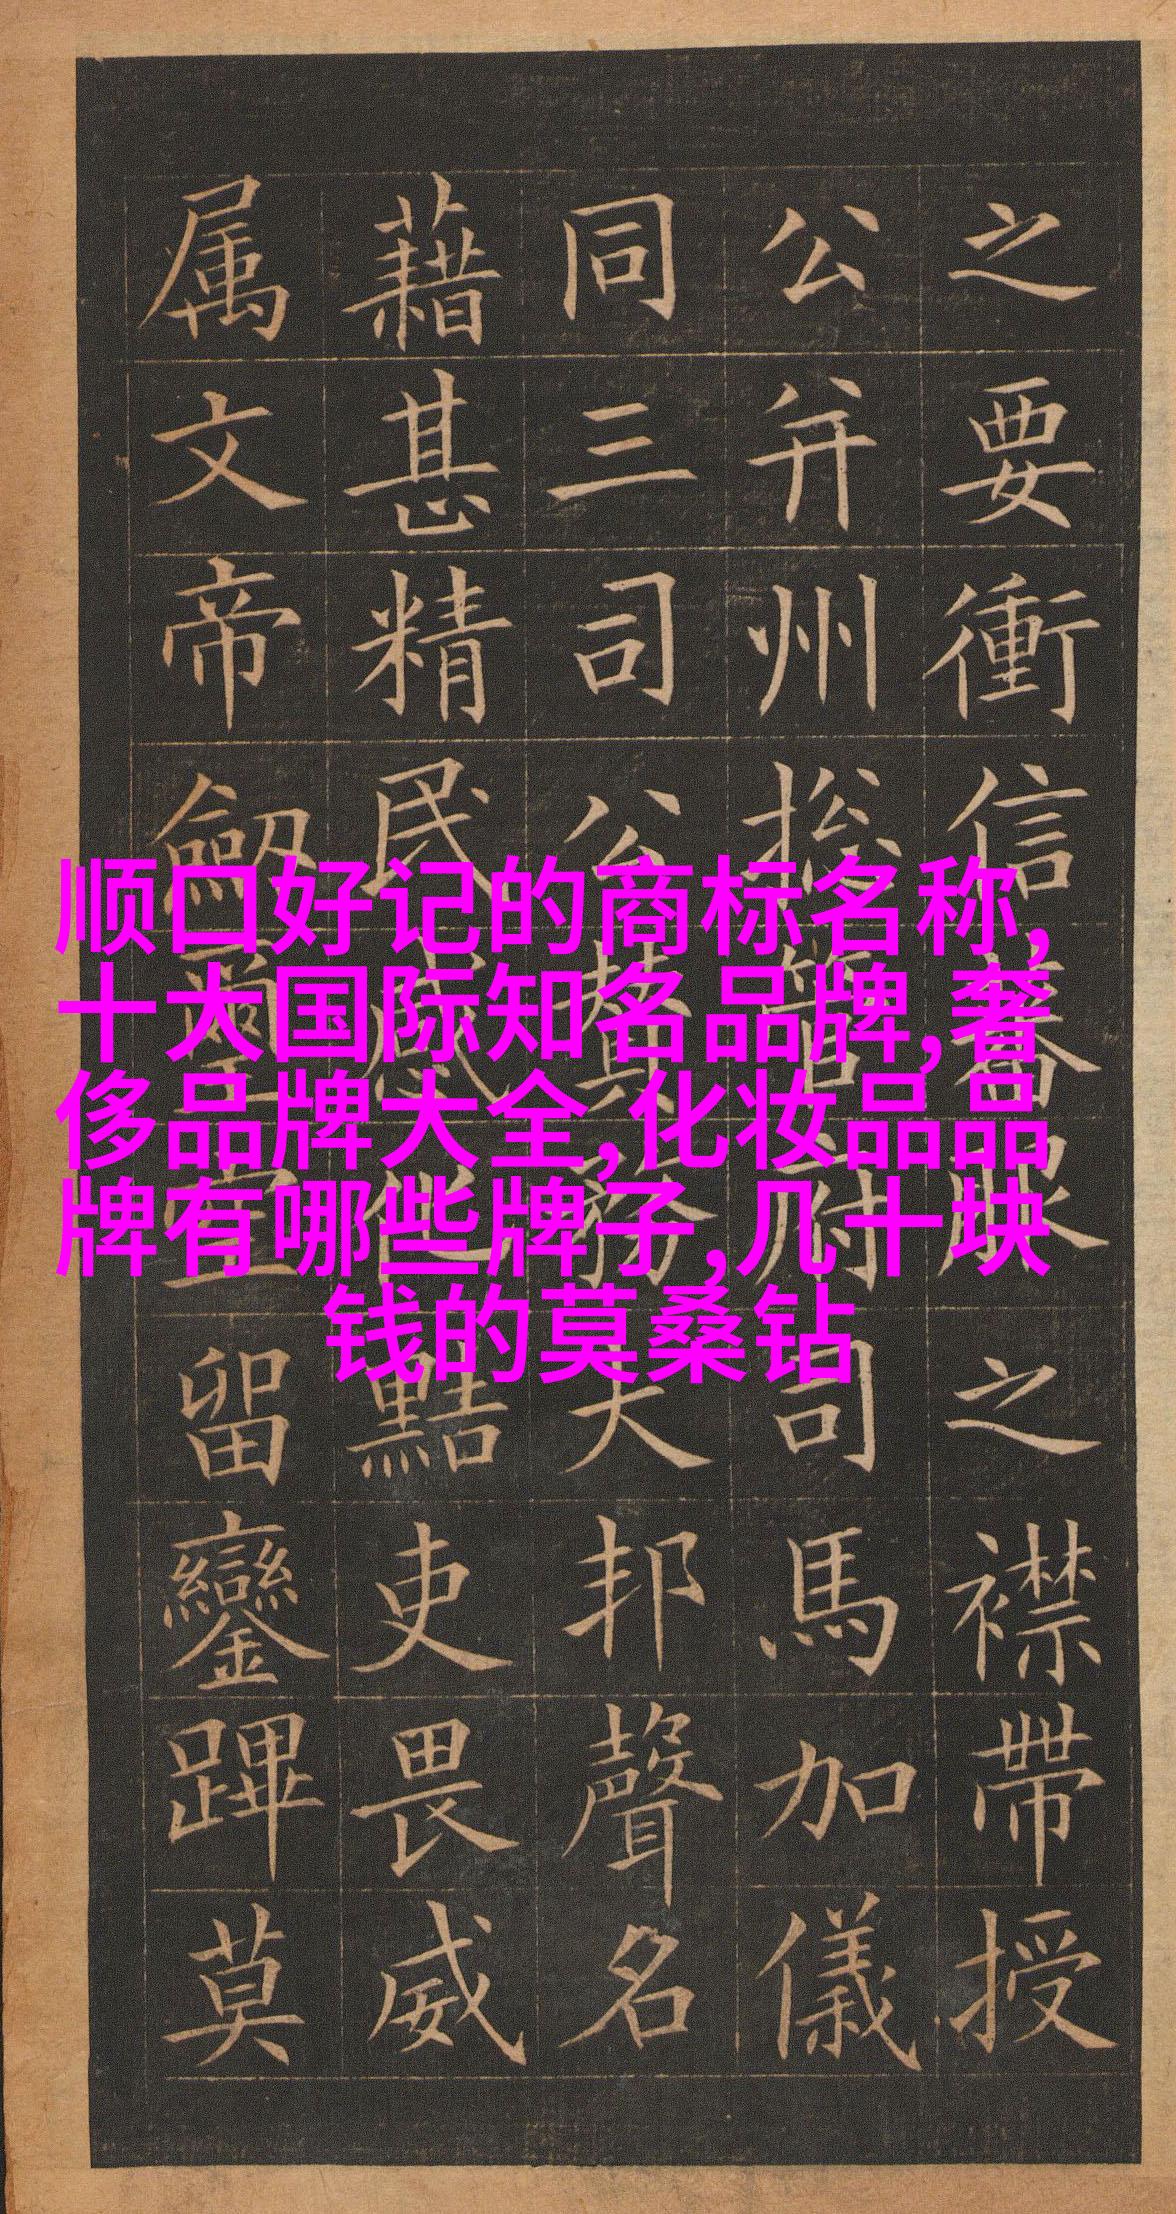 之要衝信蕃服之襟帶授
公并州揔管府司馬加儀
同三司公贊務大邦聲名
藉甚精民感化黠吏畏威
属文帝劒璽空留鑾蹕莫
顺口好记的商标名称,
十大国际知名品牌,奢
侈品牌大全,化妆品品
牌有哪些牌子,几十块
钱的莫桑钻